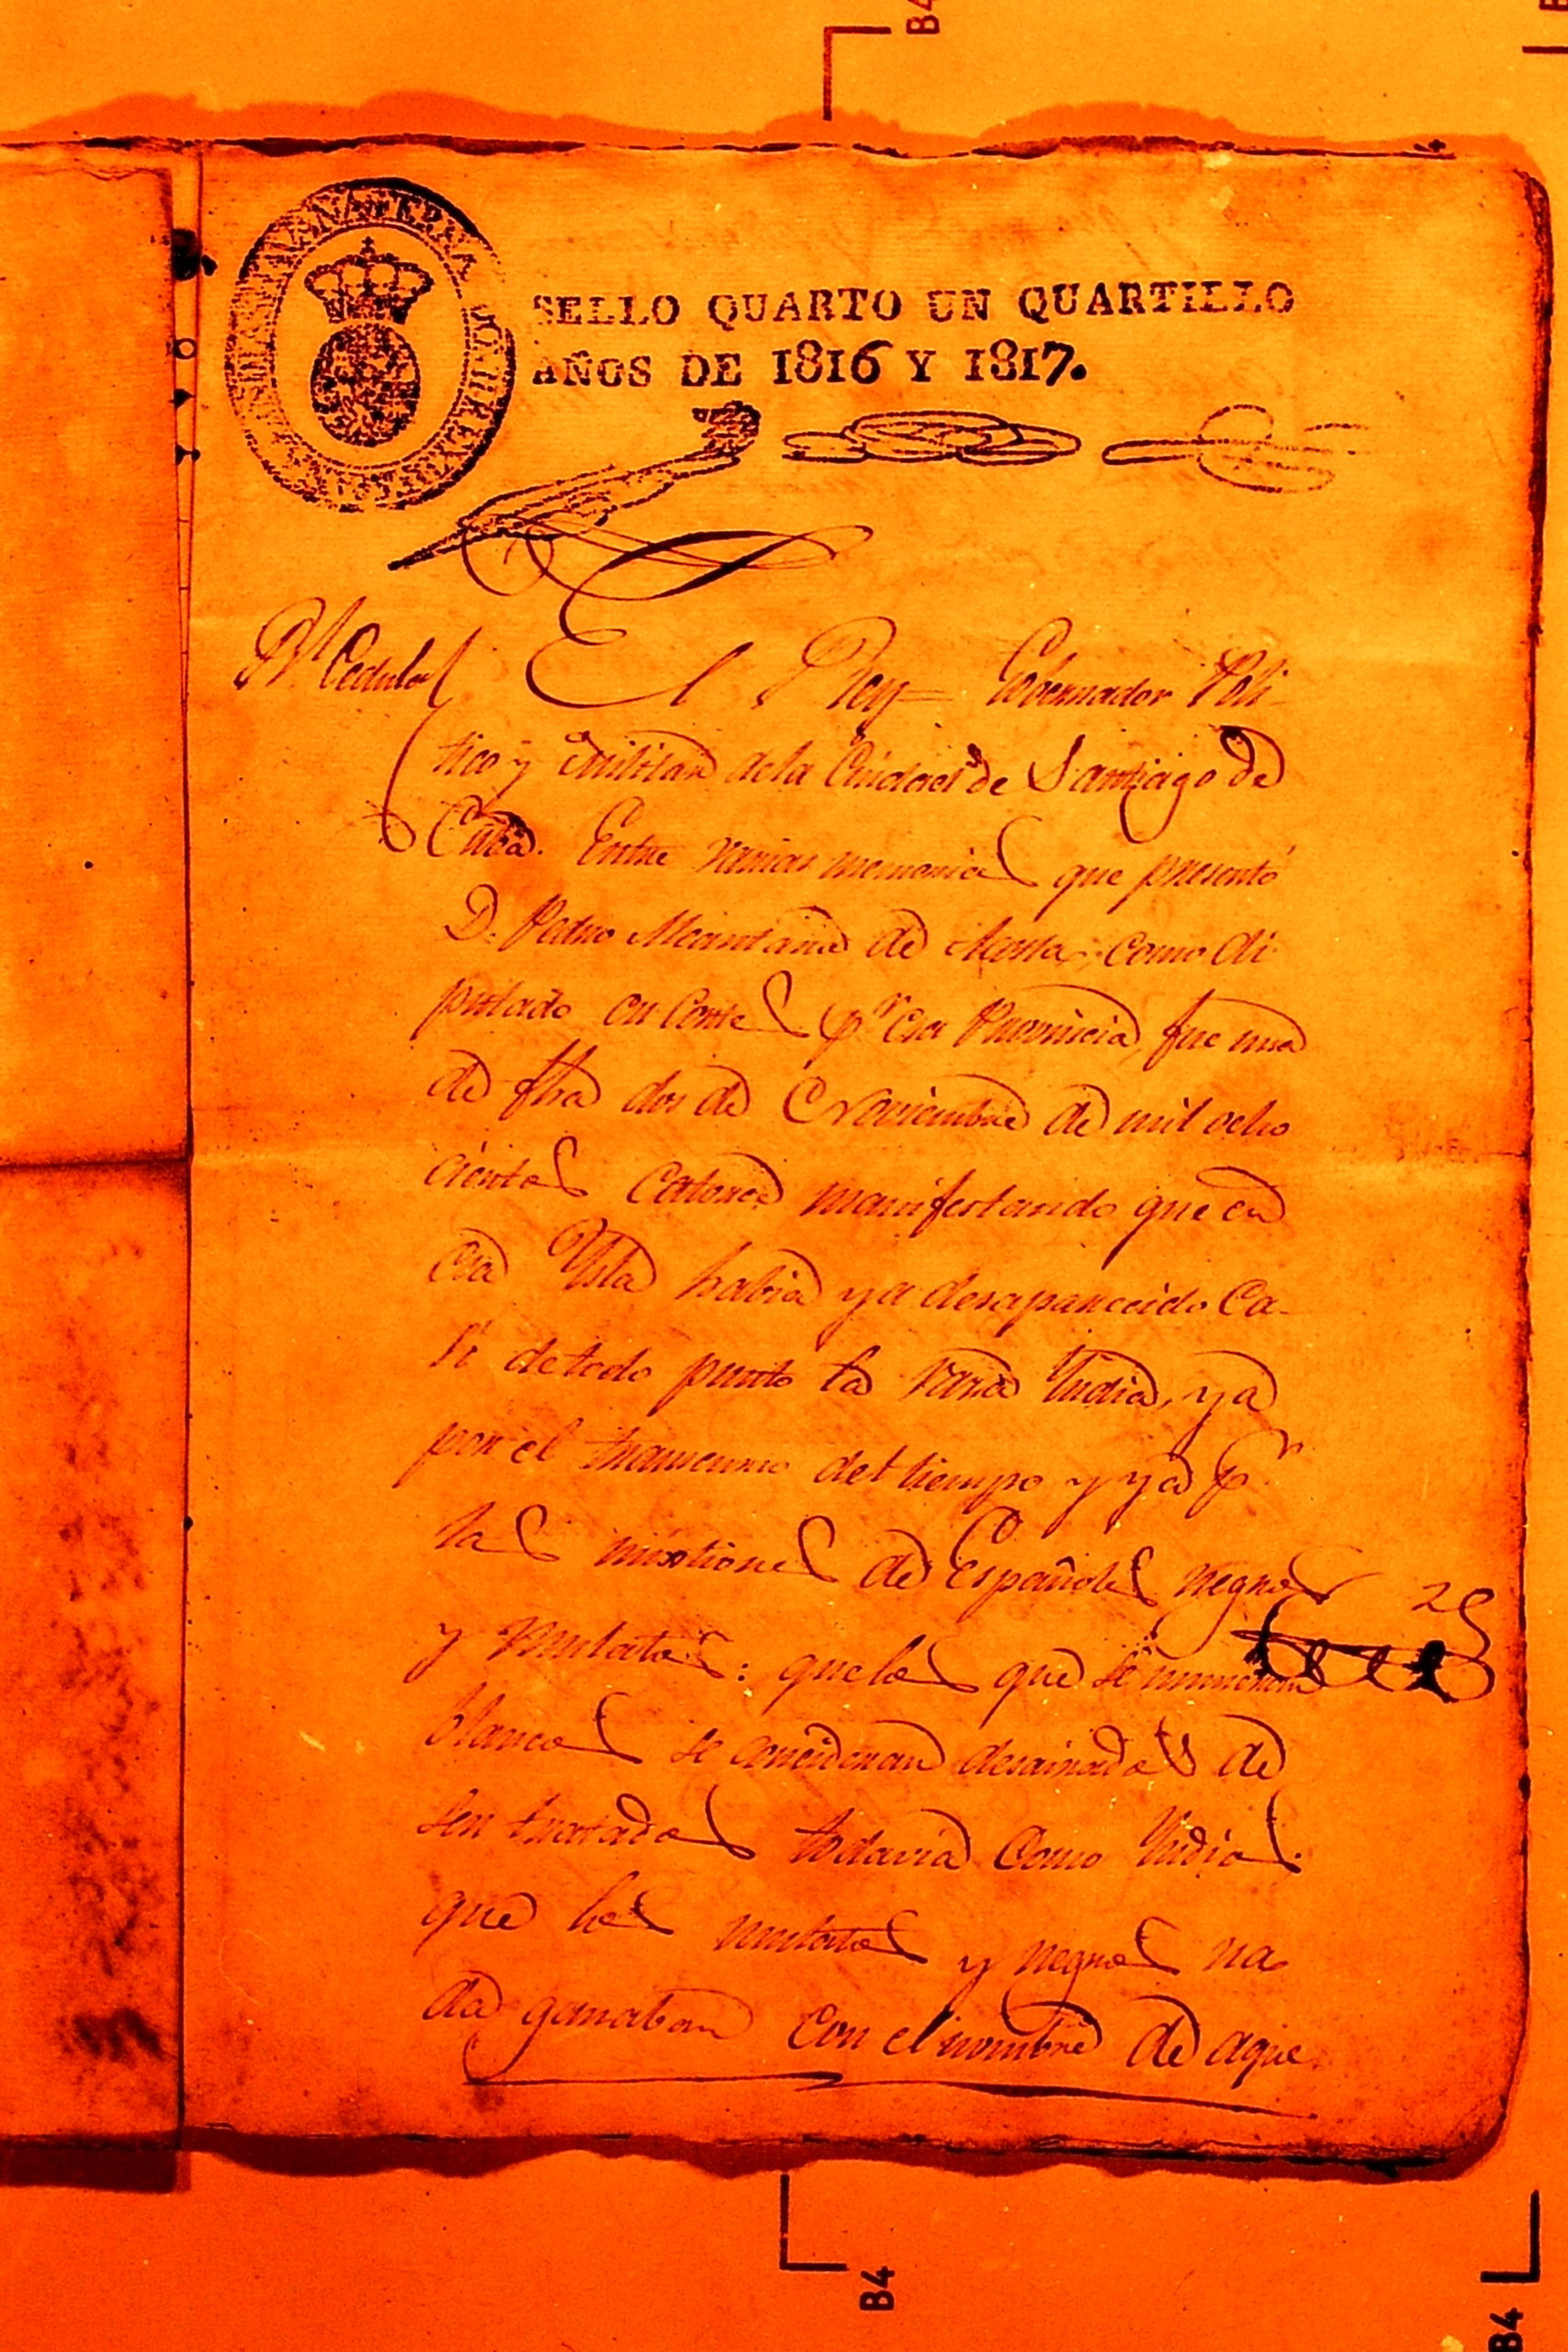 B4
SELLO QUARTO UN QUARTILLO
AÑOS DE 1816 Y 1817.
Rl. Cedula
El Rey = Gobernador Poli-
tico y militar dela Ciudad de Santiago de
Cuba. Entre varias memorias que presentó
D. Pedro Alcantara de Acosta, como di-
putado en Cortes pr. esa Provincia, fue una
de fha dos de Noviembre de mil ocho
cientos catorce manifestando que en
esa Ysla habia ya desaparecido ca-
si detodo punto la raza Yndia, ya
por el transcurso del tiempo y ya pr.
las mixtiones de Españoles negros
y mulatos: quelos que se numeran
blancos se consideran desairados de
ser tratados todavia como Yndios:
que los mulatos y negros na
da ganaban con el nombre de aque
25
B4
B4